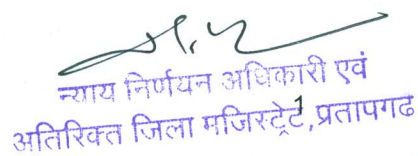 न्याय निर्णयन अधिकारी एवं
अतिरिक्त जिला मजिस्ट्रेट, प्रतापगढ